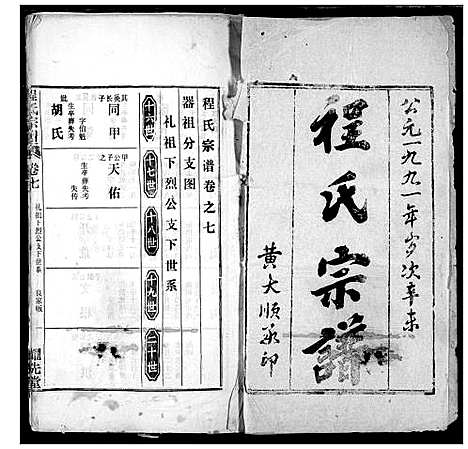 公元一九九一年岁次辛未
程氏宗譜
黄大顺承印
程氏宗谱卷之七
器祖分支图
礼祖下烈公支下世系
十六世
十七世
十八世
十九世
二十世
其英长子
同甲
字伯魁
生卒葬失考
妣
胡氏
甲公子之
天佑
生卒葬失考
失传
程氏宗谱
卷七
礼祖下烈公支下世系